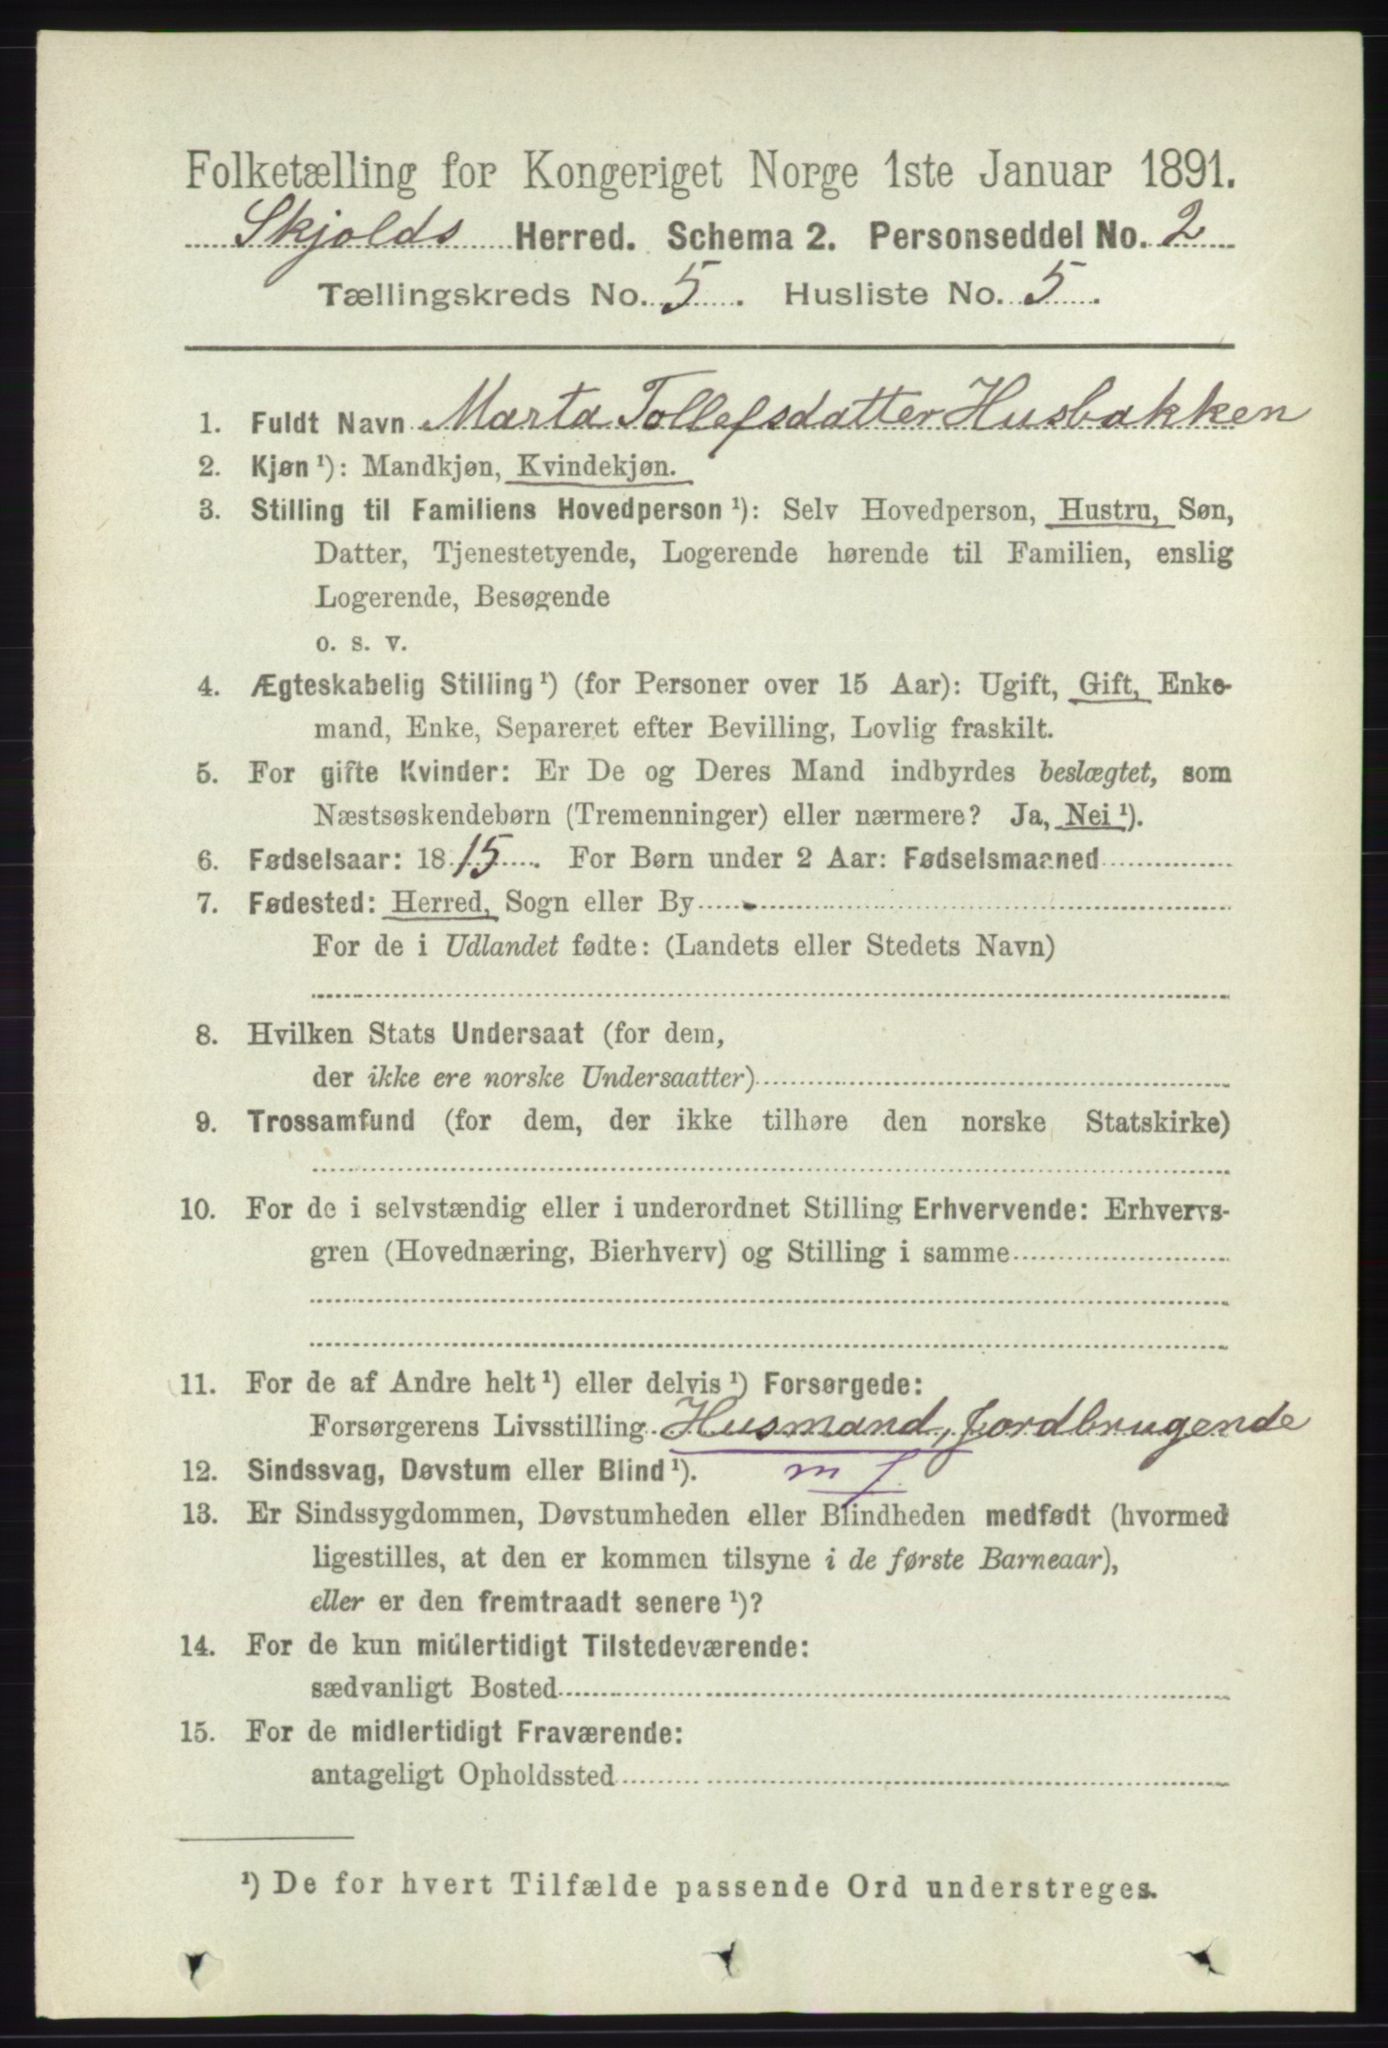 Folketælling for Kongeriget Norge 1ste Januar 1891.
Skjolds Herred. Schema 2. Personseddel No. 2
Tællingskreds No. 5. Husliste No. 5.
1. Fuldt Navn Marta Tollefsdatter Husbakken
2. Kjøn ¹): Mandkjøn, Kvindekjøn.
3. Stilling til Familiens Hovedperson ¹): Selv Hovedperson, Hustru, Søn,
Datter, Tjenestetyende, Logerende hørende til Familien, enslig
Logerende, Besøgende
o. s. v.
4. Ægteskabelig Stilling ¹) (for Personer over 15 Aar): Ugift, Gift, Enke-
mand, Enke, Separeret efter Bevilling, Lovlig fraskilt.
5. For gifte Kvinder: Er De og Deres Mand indbyrdes beslægtet, som
Næstsøskendebørn (Tremenninger) eller nærmere? Ja, Nei ¹).
6. Fødselsaar: 1815. For Børn under 2 Aar: Fødselsmaaned
7. Fødested: Herred, Sogn eller By
For de i Udlandet fødte: (Landets eller Stedets Navn)
8. Hvilken Stats Undersaat (for dem,
der ikke ere norske Undersaatter)
9. Trossamfund (for dem, der ikke tilhøre den norske Statskirke)
10. For de i selvstændig eller i underordnet Stilling Erhvervende: Erhvervs-
gren (Hovednæring, Bierhverv) og Stilling i samme
11. For de af Andre helt ¹) eller delvis ¹) Forsørgede:
Forsørgerens Livsstilling Husmand, Jordbrugende
12. Sindssvag, Døvstum eller Blind ¹). m f
13. Er Sindssygdommen, Døvstumheden eller Blindheden medfødt (hvormed
ligestilles, at den er kommen tilsyne i de første Barneaar),
eller er den fremtraadt senere ¹)?
14. For de kun midlertidigt Tilstedeværende:
sædvanligt Bosted
15. For de midlertidigt Fraværende:
antageligt Opholdssted
¹) De for hvert Tilfælde passende Ord understreges.